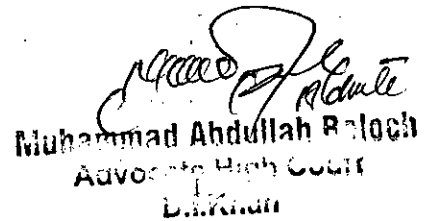 Muhammad Abdullah Baloch
Advocate High Court
D.I.Khan